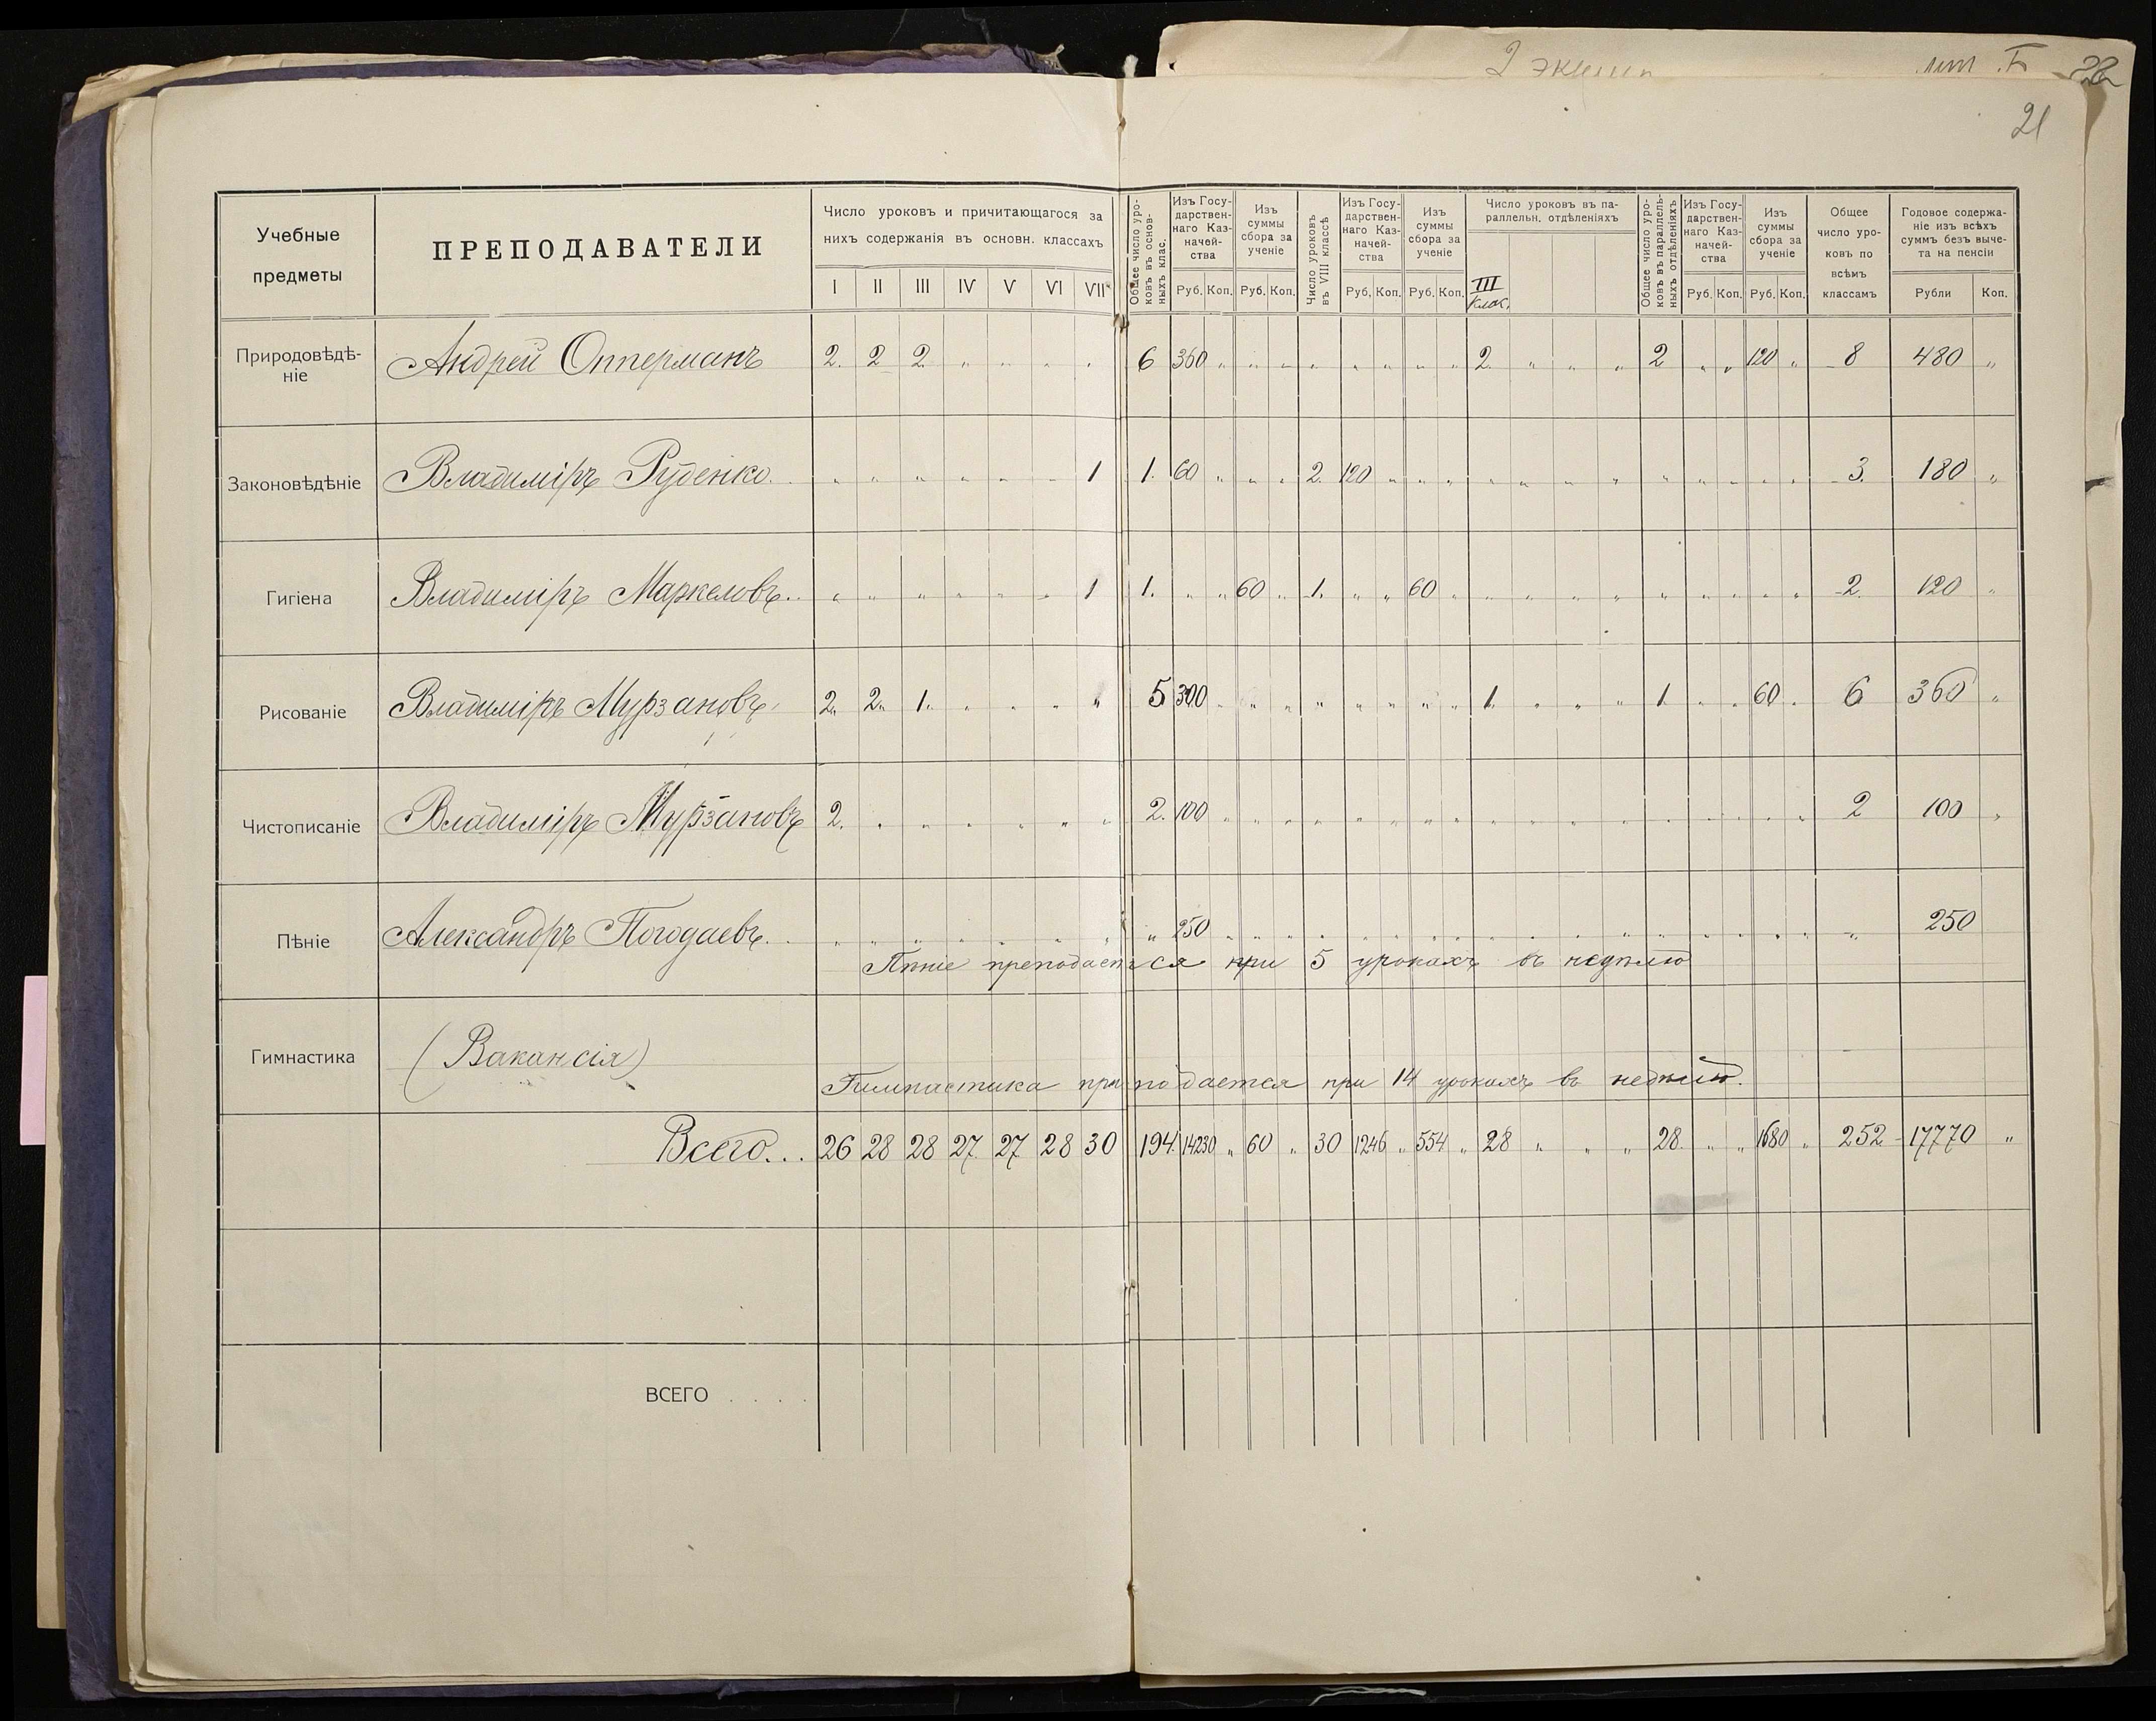 2 экземп
лит. Б
22
21
Учебные предметы
ПРЕПОДАВАТЕЛИ
Число уроковъ и причитающагося за
нихъ содержанія въ основн. классахъ
I II III IV V VI VII
Общее число уро-
ковъ въ основ-
ныхъ клас.
Изъ Госу-
дарствен-
наго Каз-
начей-
ства
Руб. Коп.
Изъ
суммы
сбора за
ученіе
Руб. Коп.
Число уроковъ
въ VIII классѣ
Изъ Госу-
дарствен-
наго Каз-
начей-
ства
Руб. Коп.
Изъ
суммы
сбора за
ученіе
Руб. Коп.
Число уроковъ въ па-
раллельн. отдѣленіяхъ
III
клас.
Общее число уро-
ковъ въ параллель-
ныхъ отдѣленіяхъ
Изъ Госу-
дарствен-
наго Каз-
начей-
ства
Руб. Коп.
Изъ
суммы
сбора за
ученіе
Руб. Коп.
Общее
число уро-
ковъ по
всѣмъ
классамъ
Годовое содержа-
ніе изъ всѣхъ
суммъ безъ выче-
та на пенсіи
Рубли Коп.
Природовѣдѣ-
ніе
Андрей Опперманъ 2. 2 2 „ „ „ „ 6 360 „ „ „ „ „ „ „ „ 2. „ „ „ 2 „ „ 120 „ 8 480 „
Законовѣдѣніе Владиміръ Руденко. „ „ „ „ „ „ 1 1. 60 „ „ „ 2. 120 „ „ „ „ „ „ „ „ „ „ „ „ 3. 180 „
Гигіена Владиміръ Маркеловъ.. „ „ „ „ „ „ 1 1. „ „ 60 „ 1. „ „ 60 „ „ „ „ „ „ „ „ „ „ 2. 120 „
Рисованіе Владиміръ Мурзановъ 2„ 2„ 1„ „ „ „ „ 5 300 „ „ „ „ „ „ „ „ 1. „ „ „ 1. „ „ 60 „ 6 360 „
Чистописаніе Владиміръ Мурзановъ 2. „ „ „ „ „ „ 2. 100 „ „ „ „ „ „ „ „ „ „ „ „ „ „ „ „ „ 2 100 „
Пѣніе Александръ Погодаевъ. „ „ „ „ „ „ „ „ 250 „ „ „ „ „ „ „ „ „ „ „ „ „ „ „ „ „ „ 250
Пѣніе преподается при 5 урокахъ въ недѣлю
Гимнастика (Вакансія)
Гимнастика преподается при 14 урокахъ въ недѣлю.
Всего... 26 28 28 27 27 28 30 194. 14230 „ 60 „ 30 1246 „ 554 „ 28 „ „ „ 28. „ „ 1680 „ 252 17770 „
ВСЕГО . . . .